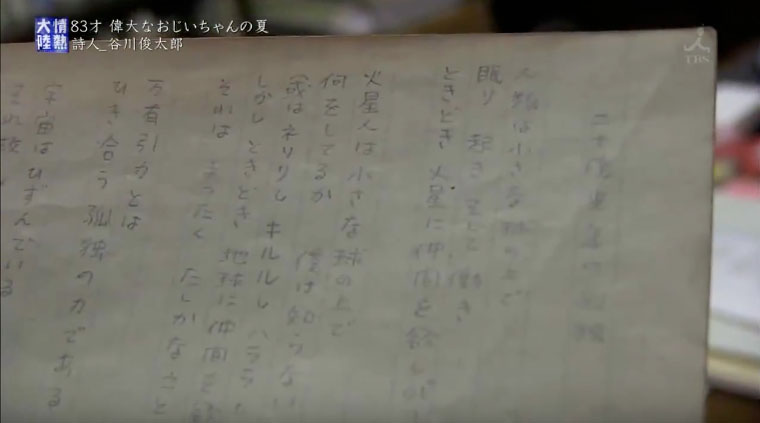 情熱大陸
83才 偉大なおじいちゃんの夏
詩人_谷川俊太郎
TBS
二十億光年の孤独
人類は小さな球の上で
眠り 起き そして 働き
ときどき 火星に仲間を欲しが
火星人は小さな球の上で
何をしてるか 僕は知らない
(或は ネリリし キルルし ハララし
しかし ときどき 地球に仲間を欲
それは まったく たしかなこと
万有引力とは
ひき合う 孤独の力である
宇宙はひずんでいる
それ故